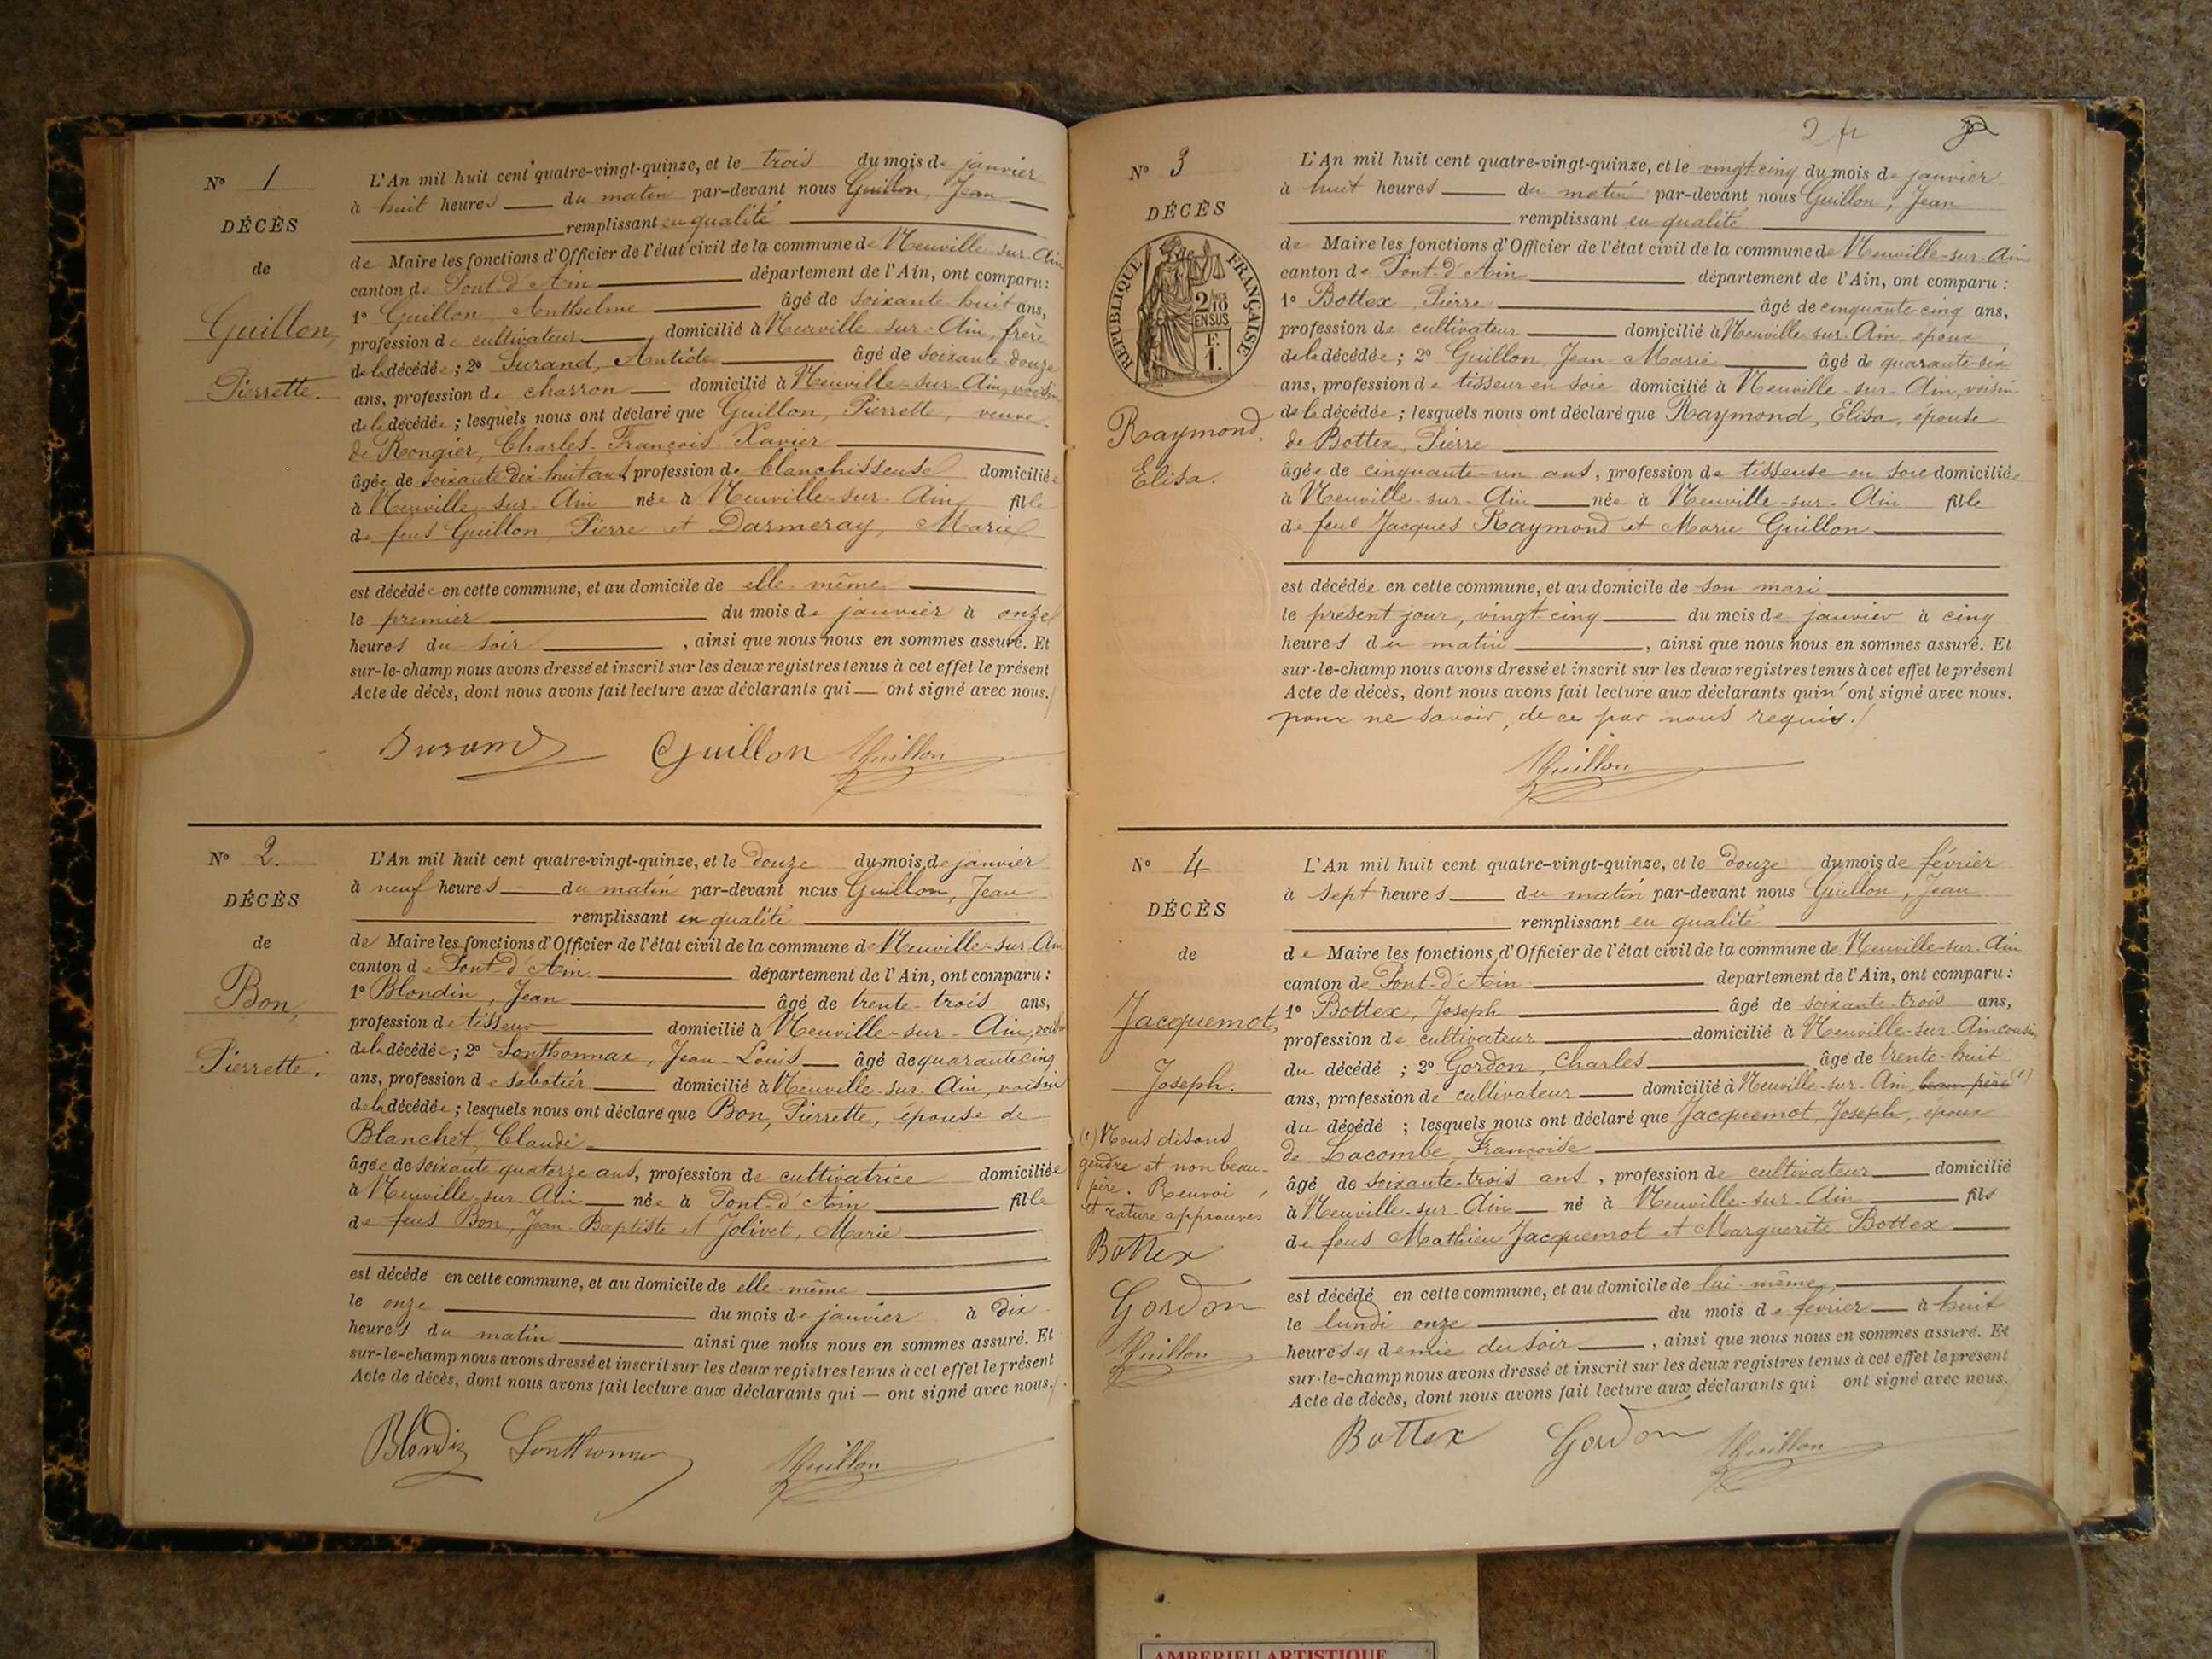 N° 1
DÉCÈS
de
Guillon,
Pierrette.
L'An mil huit cent quatre-vingt-quinze, et le trois du mois de janvier
à huit heures du matin par-devant nous Guillon, Jean
remplissant en qualité
de Maire les fonctions d'Officier de l'état civil de la commune de Neuville-sur-Ain
canton de Pont-d'Ain département de l'Ain, ont comparu:
1° Guillon Anthelme âgé de soixante huit ans,
profession de cultivateur domicilié à Neuville-sur-Ain, frère
de la décédée; 2° Durand, Antide âgé de soixante-douze
ans, profession de charron domicilié à Neuville-sur-Ain, voisin
de la décédée; lesquels nous ont déclaré que Guillon, Pierrette, veuve
de Rongier, Charles-François-Xavier
âgée de soixante-dix-huit ans, profession de blanchisseuse domiciliée
à Neuville-sur-Ain née à Neuville-sur-Ain fille
de feus Guillon, Pierre et Darmeray, Marie
est décédée en cette commune, et au domicile de elle-même
le premier du mois de janvier à onze
heures du soir, ainsi que nous nous en sommes assuré. Et
sur-le-champ nous avons dressé et inscrit sur les deux registres tenus à cet effet le présent
Acte de décès, dont nous avons fait lecture aux déclarants qui — ont signé avec nous.
Durand Guillon Guillon
N° 2.
DÉCÈS
de
Bon,
Pierrette.
L'An mil huit cent quatre-vingt-quinze, et le douze du mois de janvier
à neuf heures du matin par-devant nous Guillon, Jean
remplissant en qualité
de Maire les fonctions d'Officier de l'état civil de la commune de Neuville-sur-Ain
canton de Pont-d'Ain département de l'Ain, ont comparu:
1° Blondin, Jean âgé de trente-trois ans,
profession de tisseur domicilié à Neuville-sur-Ain, voisin
de la décédée; 2° Sonthonnax, Jean-Louis âgé de quarante cinq
ans, profession de sabotier domicilié à Neuville-sur-Ain, voisin
de la décédée; lesquels nous ont déclaré que Bon, Pierrette, épouse de
Blanchet, Claude
âgée de soixante-quatorze ans, profession de cultivatrice domiciliée
à Neuville-sur-Ain née à Pont-d'Ain fille
de feus Bon, Jean-Baptiste et Jolivet, Marie
est décédé en cette commune, et au domicile de elle-même
le onze du mois de janvier à dix
heures du matin ainsi que nous nous en sommes assuré. Et
sur-le-champ nous avons dressé et inscrit sur les deux registres tenus à cet effet le présent
Acte de décès, dont nous avons fait lecture aux déclarants qui — ont signé avec nous.
Blondin Sonthonnax Guillon
2 fr
N° 3
DÉCÈS
RÉPUBLIQUE FRANÇAISE
2/10 EN SUS
F. 1.
Raymond,
Elisa.
L'An mil huit cent quatre-vingt-quinze, et le vingt-cinq du mois de janvier
à huit heures du matin par-devant nous Guillon, Jean
remplissant en qualité
de Maire les fonctions d'Officier de l'état civil de la commune de Neuville-sur-Ain
canton de Pont-d'Ain département de l'Ain, ont comparu:
1° Bottex, Pierre âgé de cinquante-cinq ans,
profession de cultivateur domicilié à Neuville-sur-Ain, époux
de la décédée; 2° Guillon, Jean-Marie âgé de quarante-six
ans, profession de tisseur en soie domicilié à Neuville-sur-Ain, voisin
de la décédée; lesquels nous ont déclaré que Raymond, Elisa, épouse
de Bottex, Pierre
âgée de cinquante-un ans, profession de tisseuse en soie domiciliée
à Neuville-sur-Ain née à Neuville-sur-Ain fille
de feus Jacques Raymond et Marie Guillon
est décédée en cette commune, et au domicile de son mari
le présent jour, vingt cinq du mois de janvier à cinq
heures du matin, ainsi que nous nous en sommes assuré. Et
sur-le-champ nous avons dressé et inscrit sur les deux registres tenus à cet effet le présent
Acte de décès, dont nous avons fait lecture aux déclarants qui n'ont signé avec nous.
pour ne savoir, de ce par nous requis.
Guillon
N° 4
DÉCÈS
de
Jacquemot,
Joseph.
(1) Nous disons
gendre et non beau-
père. Renvoi
et rature approuvés
Bottex
Gordon
Guillon
L'An mil huit cent quatre-vingt-quinze, et le douze du mois de février
à sept heures du matin par-devant nous Guillon, Jean
remplissant en qualité
de Maire les fonctions d'Officier de l'état civil de la commune de Neuville-sur-Ain
canton de Pont-d'Ain departement de l'Ain, ont comparu:
1° Bottex, Joseph âgé de soixante-trois ans,
profession de cultivateur domicilié à Neuville-sur-Ain cousin
du décédé; 2° Gordon, Charles âgé de trente-huit
ans, profession de cultivateur domicilié à Neuville-sur-Ain, beau-père (1)
du décédé; lesquels nous ont déclaré que Jacquemot, Joseph, époux
de Lacombe, Françoise
âgé de soixante-trois ans, profession de cultivateur domicilié
à Neuville-sur-Ain né à Neuville-sur-Ain fils
de feus Mathieu Jacquemot et Marguerite Bottex
est décédé en cette commune, et au domicile de lui-même,
le lundi onze du mois de février à huit
heures et demie du soir, ainsi que nous nous en sommes assuré. Et
sur-le-champ nous avons dressé et inscrit sur les deux registres tenus à cet effet le présent
Acte de décès, dont nous avons fait lecture aux déclarants qui ont signé avec nous.
Bottex Gordon Guillon
AMBERIEU ARTISTIQUE